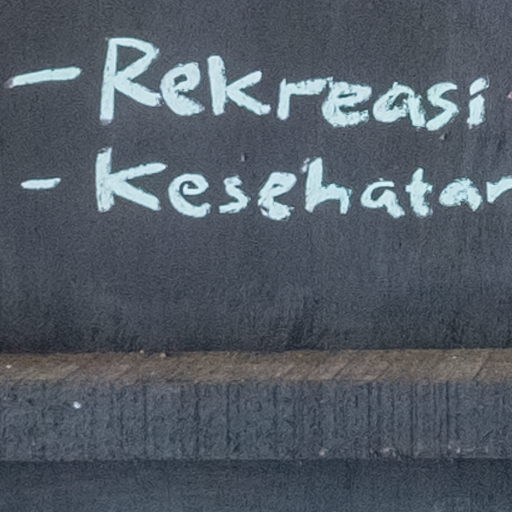 - Rekreasi
- Kesehatan